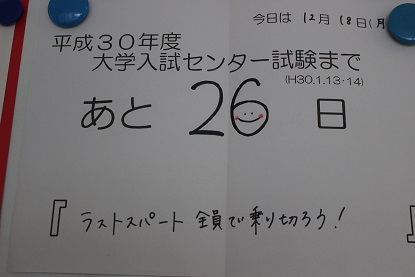 今日は 12月 18日(月
平成30年度
大学入試センター試験まで
(H30.1.13・14)
あと 26 日
『 ラストスパート 全員で乗り切ろう! 』